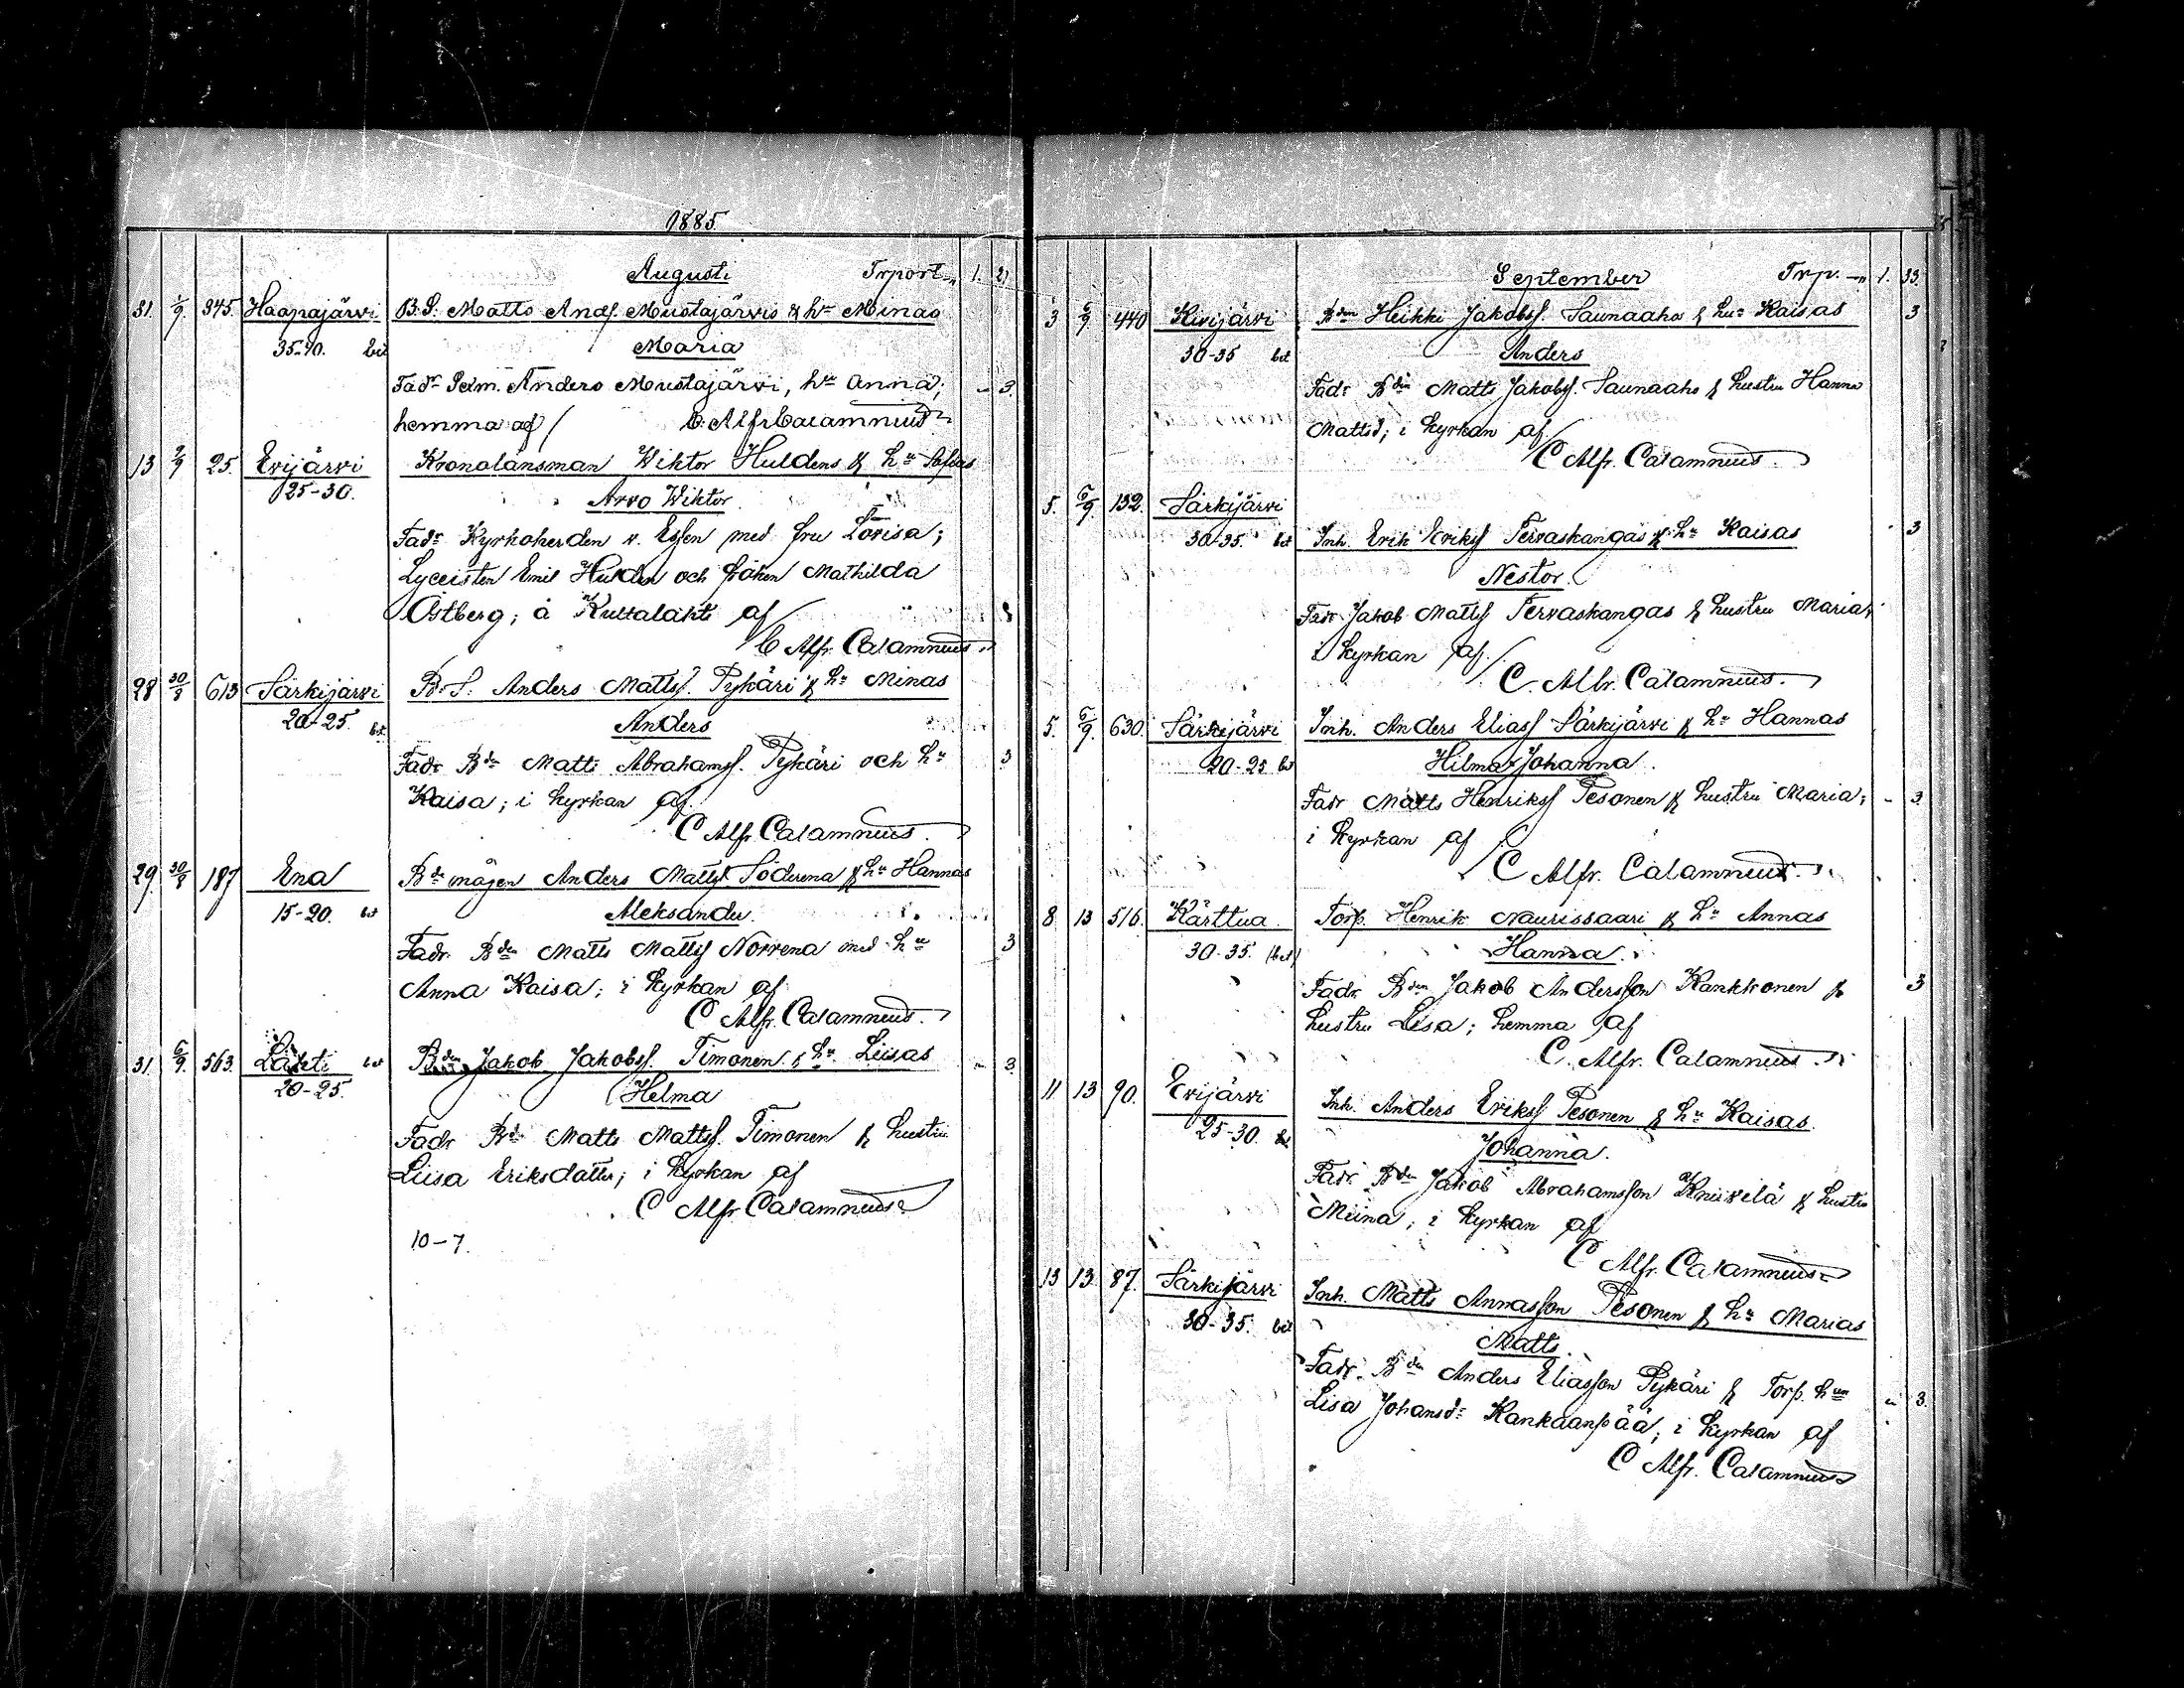 1885.
Augusti Trport „ 1. 21
31. 1/9. 345. Haapajärvi B.S. Matts Ands. Mustajärvis & hu Minas
35-40. bet Maria
Fadr Sdm. Anders Mustajärvi, hu Anna; - 3.
hemma af C. Alfr Calamnius
13 2/9 25. Evijärvi Kronolänsman Wiktor Huldens & hu Sofias
25-30. Arvo Wiktor
Fadr Kyrkoherden v. Essen med fru Lovisa;
Lyceisten Emil Hulden och fröken Mathilda
Östberg; å Kuttalahti af
C Alfr. Calamnius
28 30/8 613 Särkijärvi B.S. Anders Mattss. Pykäri & hu Minas
20-25. bet Anders
Fadr Bdn Matti Abrahamss. Pykäri och hu 3
Kaisa; i kyrkan af
C Alfr. Calamnius
29. 30/8 187 Ena Bde mågen Anders Mattss Söderena & hu Hannas
15-20. bet Aleksander
Fadr. Bdn Matts Mattss Norrena med hu 3
Anna Kaisa; i kyrkan af
C Alfr. Calamnius
31. 6/9. 563. Lahti bet Bden Jakob Jakobss. Timonen & hu Liisas - 3
20-25. Helma
Fadr Bdn Matts Mattss. Timonen & hustru
Liisa Eriksdotter; i kyrkan af
C Alfr Calamnius
10-7.
September Trp. „ 1. 33.
3 6/9 440 Kivijärvi Bden Heikki Jakobss. Saunaaho & hus Kaisas 3
30-35 bet Anders
Fadr Bdn Matts Jakobss. Saunaaho & hustru Hanna
Mattsd; i kyrkan af
C Alfr. Calamnius
5. 6/9. 132. Särkijärvi
30-35. bet Inh. Erik Erikss Tervaskangas & hu Kaisas 3
Nestor.
Fadr Jakob Mattss Tervaskangas & hustru Maria;
i kyrkan af
C. Alfr. Calamnius
5. 6/9. 630. Särkijärvi Inh. Anders Eliass Särkijärvi & hu Hannas
20-25 bet Hilma Johanna.
Fadr Matts Henrikss Pesonen & hustru Maria; - 3.
i kyrkan af
C Alfr. Calamnius
8 13 516. Kärttua Torp. Henrik Naurissaari & hu Annas
30-35. (bet) Hanna.
Fadr. Bden Jakob Andersson Kankkonen & 3
hustru Lisa; hemma af
C. Alfr. Calamnius
11 13 90. Evijärvi Inh. Anders Erikss Pesonen & hu Kaisas.
25-30. bet Johanna.
Fadr. Bdn Jakob Abrahamsson Kniivilä & hustru
Miina; i kyrkan af
C Alfr. Calamnius
13 13. 87. Särkijärvi Inh. Matts Annasson Pesonen & hu Marias
30-35. bet Matts.
Fadr. Bdn Anders Eliasson Pykäri & Torp. hun
Lisa Johansdr Kankaanpää; i kyrkan af „ 3.
C Alfr. Calamnius